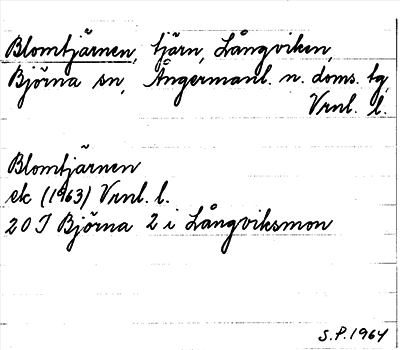 Blomtjärnen, tjärn, Långviken,
Björna sn, Ångermanl. n. doms. tg,
Vrnl. l.
Blomtjärnen
ek (1963) Vrnl. l.
20 I Björna 2 i Långviksmon
S.P. 1964